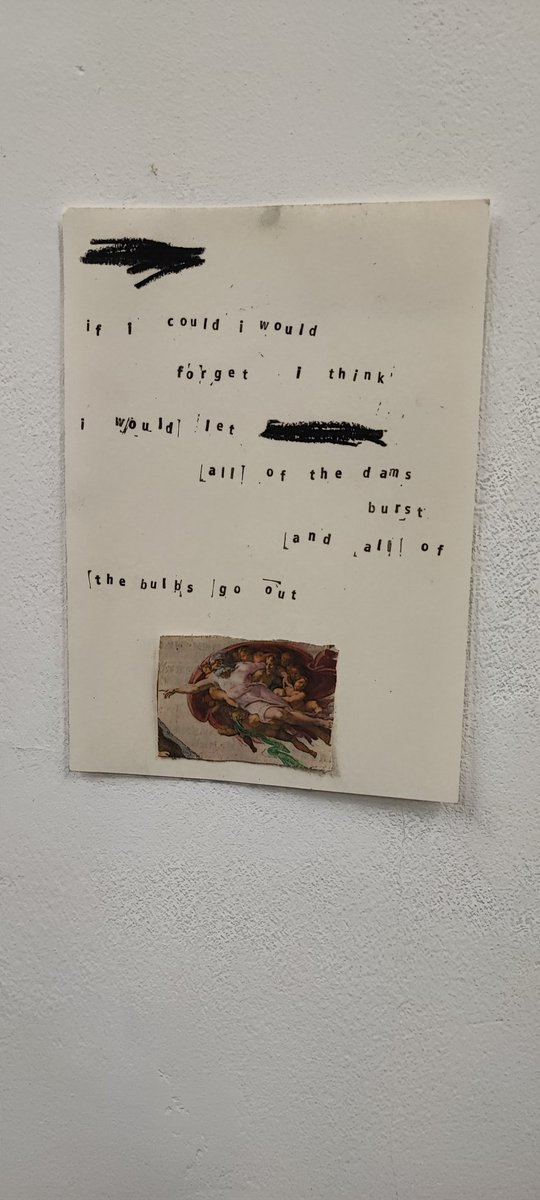 if I could i would
forget i think
i would let
all of the dams
burst
and all of
the bulbs go out